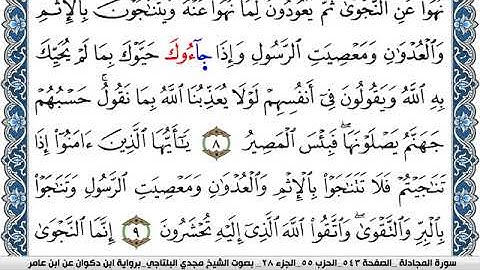 نُهُوا۟ عَنِ ٱلنَّجْوَىٰ ثُمَّ يَعُودُونَ لِمَا نُهُوا۟ عَنْهُ وَيَتَنَٰجَوْنَ بِٱلْإِثْمِ
وَٱلْعُدْوَٰنِ وَمَعْصِيَتِ ٱلرَّسُولِ وَإِذَا جَآءُوكَ حَيَّوْكَ بِمَا لَمْ يُحَيِّكَ
بِهِ ٱللَّهُ وَيَقُولُونَ فِىٓ أَنفُسِهِمْ لَوْلَا يُعَذِّبُنَا ٱللَّهُ بِمَا نَقُولُ ۚ حَسْبُهُمْ
جَهَنَّمُ يَصْلَوْنَهَا ۖ فَبِئْسَ ٱلْمَصِيرُ ٨ يَٰٓأَيُّهَا ٱلَّذِينَ ءَامَنُوٓا۟ إِذَا
تَنَٰجَيْتُمْ فَلَا تَتَنَٰجَوْا۟ بِٱلْإِثْمِ وَٱلْعُدْوَٰنِ وَمَعْصِيَتِ ٱلرَّسُولِ وَتَنَٰجَوْا۟
بِٱلْبِرِّ وَٱلتَّقْوَىٰ ۖ وَٱتَّقُوا۟ ٱللَّهَ ٱلَّذِىٓ إِلَيْهِ تُحْشَرُونَ ٩ إِنَّمَا ٱلنَّجْوَىٰ
سورة المجادلة _الصفحة ٥٤٣_الحزب ٥٥_الجزء ٢٨_ بصوت الشيخ مجدي البلتاجي_برواية ابن ذكوان عن ابن عامر